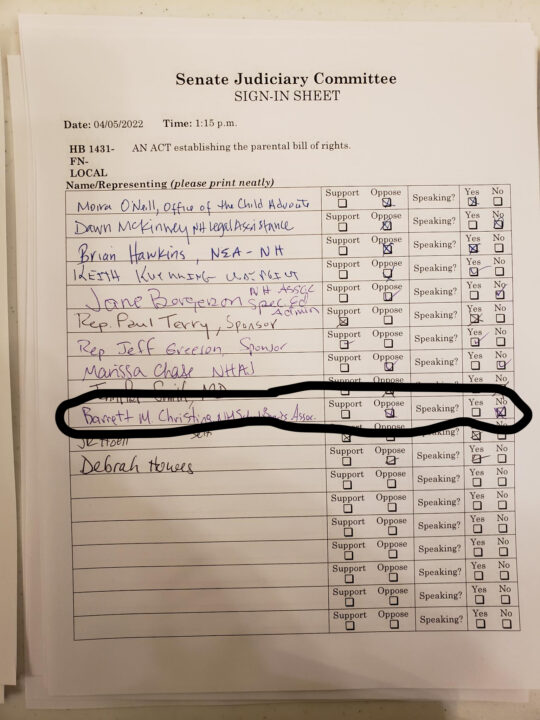 Senate Judiciary Committee
SIGN-IN SHEET
Date: 04/05/2022 Time: 1:15 p.m.
HB 1431- AN ACT establishing the parental bill of rights.
FN-
LOCAL
Name/Representing (please print neatly)
Moira O'Neill, Office of the Child Advocate Support Oppose Speaking? Yes No
Dawn McKinney NH Legal Assistance Support Oppose Speaking? Yes No
Brian Hawkins, NEA-NH Support Oppose Speaking? Yes No
KEITH Support Oppose Speaking? Yes No
Jane Bergeron NH Assoc Spec Ed Admin Support Oppose Speaking? Yes No
Rep. Paul Terry, Sponsor Support Oppose Speaking? Yes No
Rep Jeff Greeson, Sponsor Support Oppose Speaking? Yes No
Marissa Chase NHAJ Support Oppose Speaking? Yes No
Support Oppose Yes No
Barrett M Christina Assoc. Support Oppose Speaking? Yes No
JR Hoell self Support Oppose Speaking? Yes No
Debrah Howes Support Oppose Speaking? Yes No
Support Oppose Speaking? Yes No
Support Oppose Speaking? Yes No
Support Oppose Speaking? Yes No
Support Oppose Speaking? Yes No
Support Oppose Speaking? Yes No
Support Oppose Speaking? Yes No
Support Oppose Speaking? Yes No